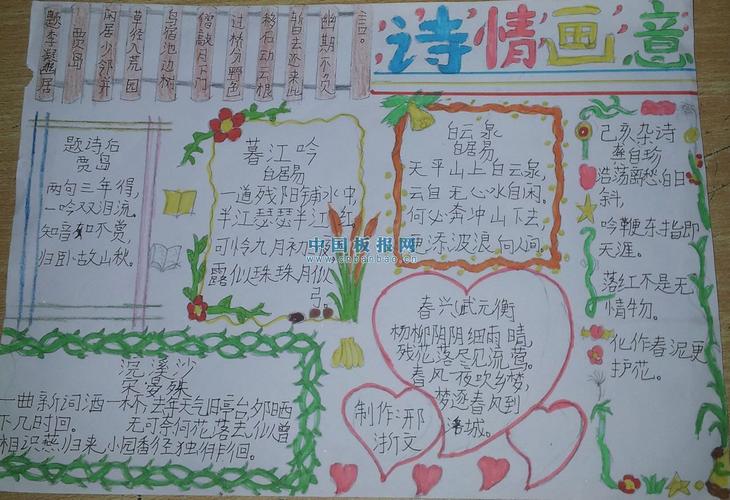 诗情画意
题李凝幽居
贾岛
闲居少邻并
草径入荒园
鸟宿池边树
僧敲月下门
过桥分野色
移石动云根
暂去还来此
幽期不负
言。
题诗后
贾岛
两句三年得,
一吟双泪流。
知音如不赏,
归卧故山秋。
暮江吟
白居易
一道残阳铺水中,
半江瑟瑟半江红
可怜九月初
露似珠珠月似
弓。
白云泉
白居易
天平山上白云泉,
云自无心水自闲。
何必奔冲山下去,
更添波浪向人间。
己亥杂诗
龚自珍
浩荡离愁白日
斜,
吟鞭东指即
天涯。
落红不是无
情物。
化作春泥更
护花。
中国板报网
www.cnbanbao.com
春兴(武元衡
杨柳阴阴细雨晴,
残花落尽见流莺。
春风一夜吹乡梦,
梦逐春风到
洛城。
浣溪沙
宋晏殊
一曲新词酒一杯,去年天气旧亭台,夕阳西
下几时回。
无可奈何花落去,似曾
相识燕归来,小园香径独徘徊。
制作:邢
浙文